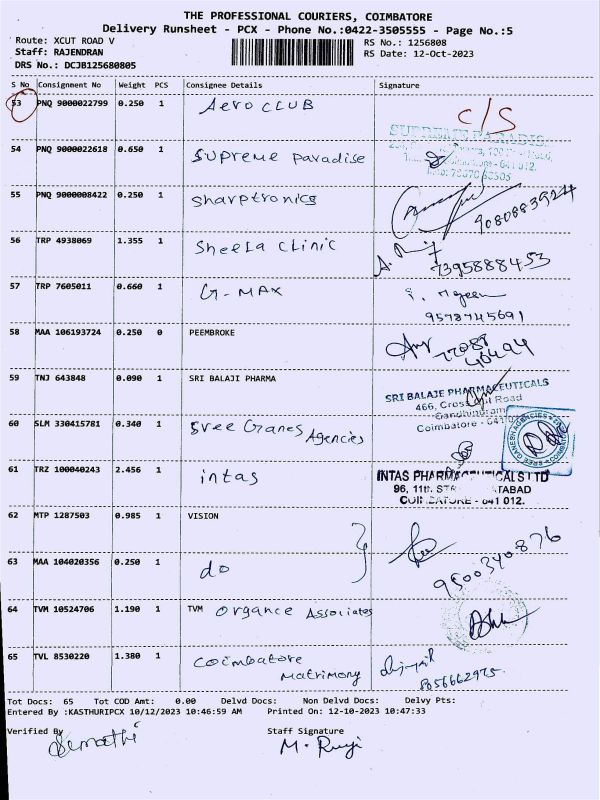 THE PROFESSIONAL COURIERS, COIMBATORE
Delivery Runsheet - PCX - Phone No.:0422-3505555 - Page No.:5
Route: XCUT ROAD V
RS No.: 1256808
Staff: RAJENDRAN
RS Date: 12-Oct-2023
DRS No.: DCJB125680805
S No Consignment No Weight PCS Consignee Details Signature
53 PNQ 9000022799 0.250 1 Aero CLUB C/S
SUPREME PARADISE
54 PNQ 9000022618 0.650 1 Supreme paradise
55 PNQ 9000008422 0.250 1 Sharptronics 9080883924
56 TRP 4938069 1.355 1 Sheela Clinic
7395888453
57 TRP 7605011 0.660 1 G-MAX
9578745691
58 MAA 106193724 0.250 0 PEEMBROKE
77088
40494
59 TNJ 643848 0.090 1 SRI BALAJI PHARMA
SRI BALAJE PHARMACEUTICALS
466, Cross Cut Road
Gandhipuram
Coimbatore - 641012
60 SLM 330415781 0.340 1 Sree Ganes Agencies
SREE GANESH AGENCIES
61 TRZ 100040243 2.456 1 intas
INTAS PHARMACEUTICALS LTD
96, 11th STR TATABAD
COIMBATORE - 641 012.
62 MTP 1287503 0.985 1 VISION
9500340876
63 MAA 104020356 0.250 1 do
64 TVM 10524706 1.190 1 TVM Organce Associates
65 TVL 8530220 1.380 1 Coimbatore
Matrimony
8056662975
Tot Docs: 65 Tot COD Amt: 0.00 Delvd Docs: Non Delvd Docs: Delvy Pts:
Entered By :KASTHURIPCX 10/12/2023 10:46:59 AM Printed On: 12-10-2023 10:47:33
Verified By Staff Signature